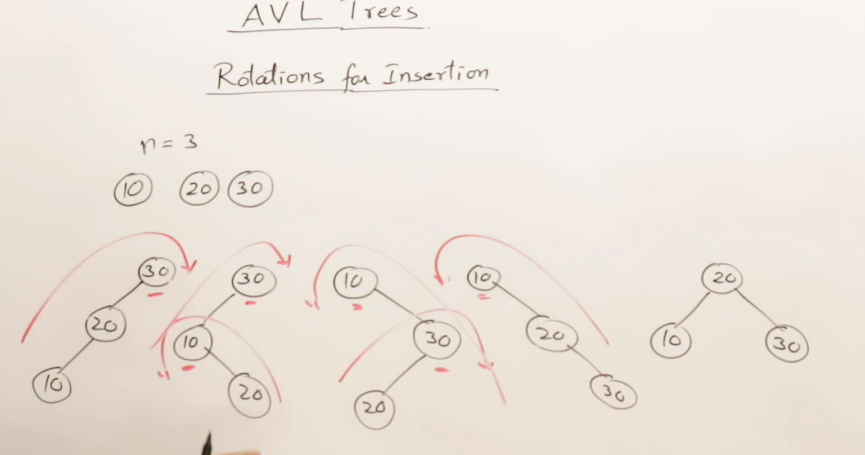 AVL Trees
Rotations for Insertion
n = 3
10 20 30
30 30 10 10 20
20 10 30 20 10 30
10 20 20 30